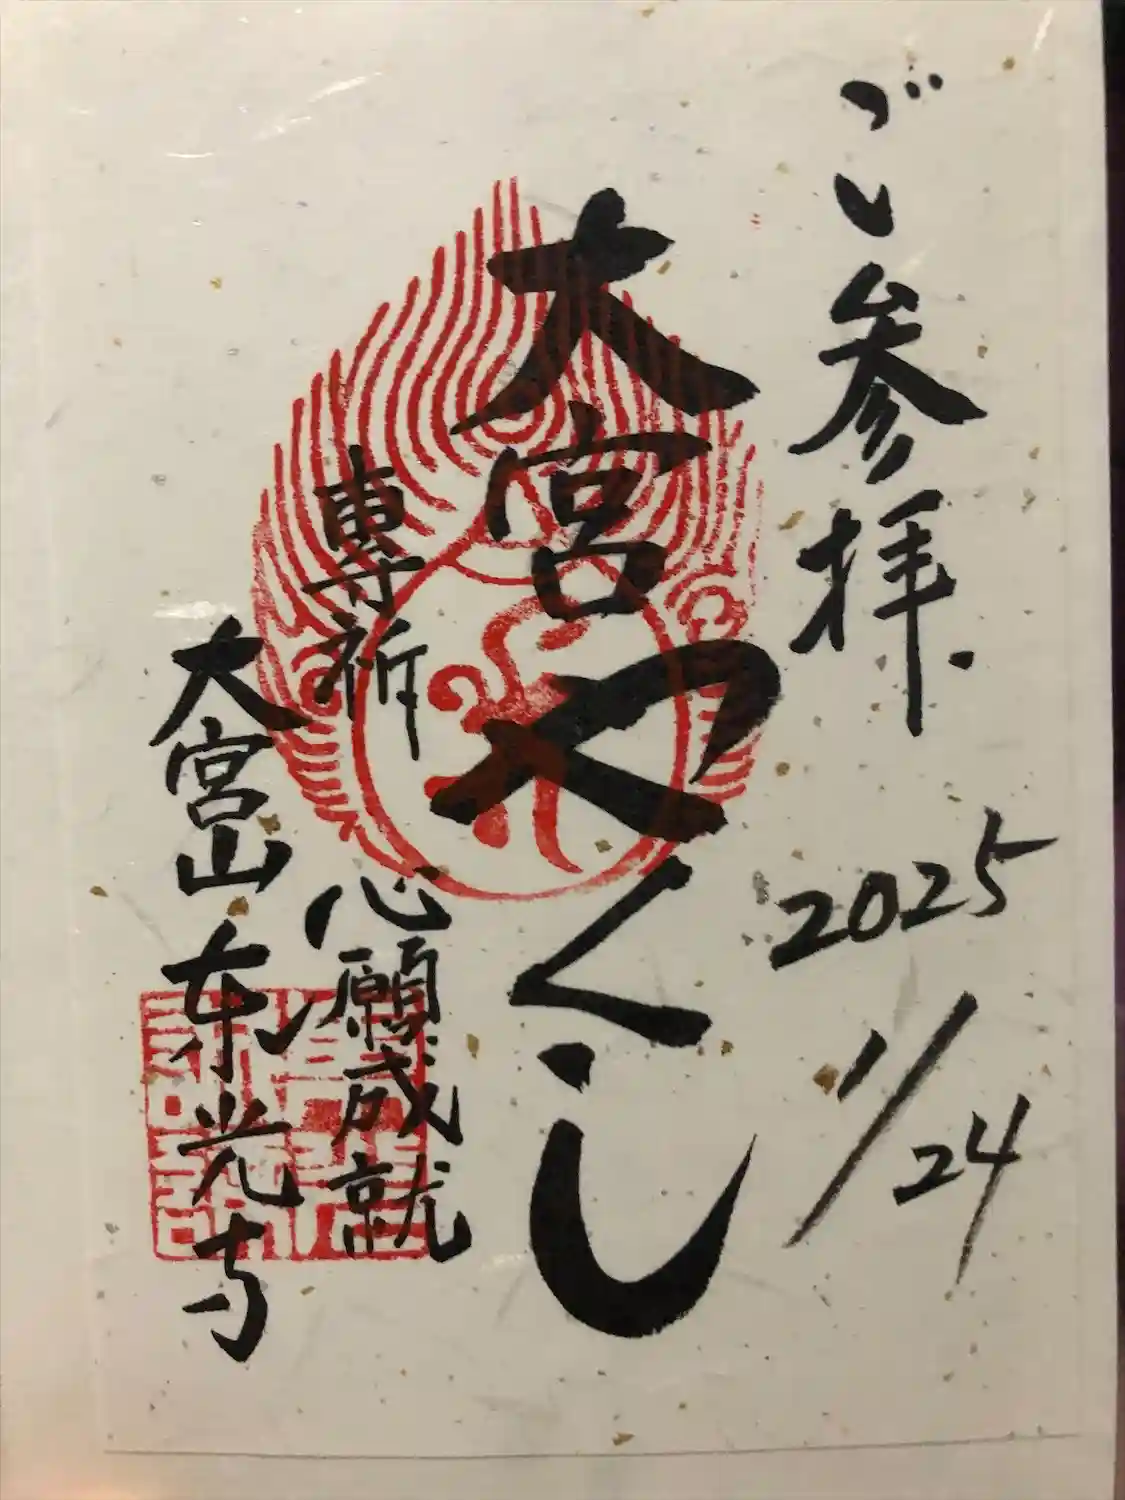 ご参拝
2025
1/24
大宮やくし
専祈
心願成就
大宮山東光寺